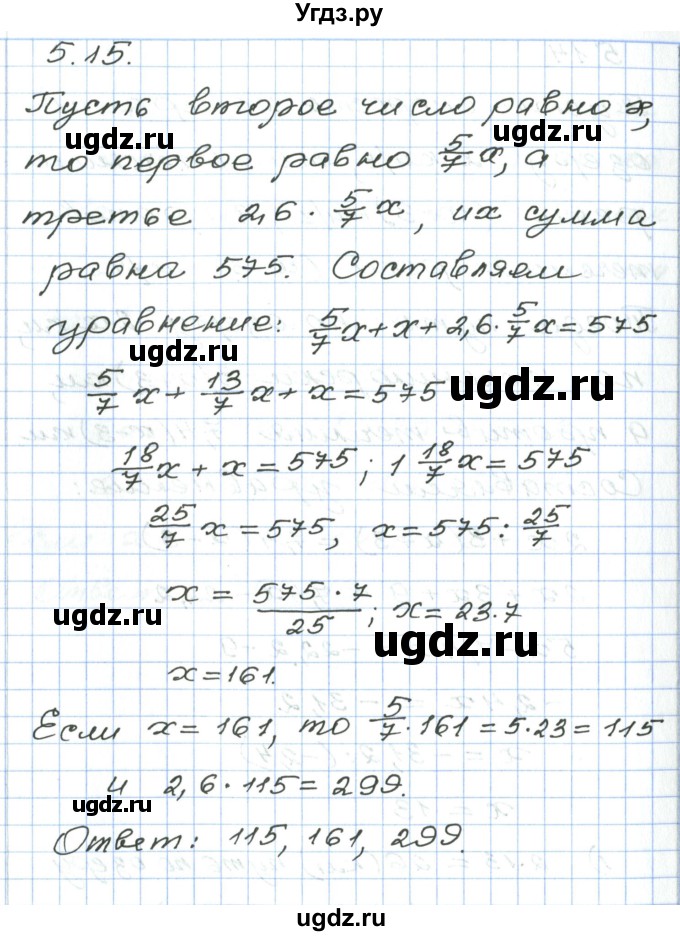 Угдз.ру
5.15.
Пусть второе число равно x,
ugdz.ru ugdz.ru
то первое равно 5/7 x, а
третье 2,6 · 5/7 x, их сумма
равна 575. Составляем
уравнение: 5/7 x + x + 2,6 · 5/7 x = 575
ugdz.ru
5/7 x + 13/7 x + x = 575
ugdz.ru
18/7 x + x = 575; 1 18/7 x = 575
25/7 x = 575, x = 575 : 25/7
x = 575 · 7 / 25; x = 23 · 7
ugdz.ru ugdz.ru
x = 161.
Если x = 161, то 5/7 · 161 = 5 · 23 = 115
и 2,6 · 115 = 299.
ugdz.ru
Ответ: 115, 161, 299.
ugdz.ru